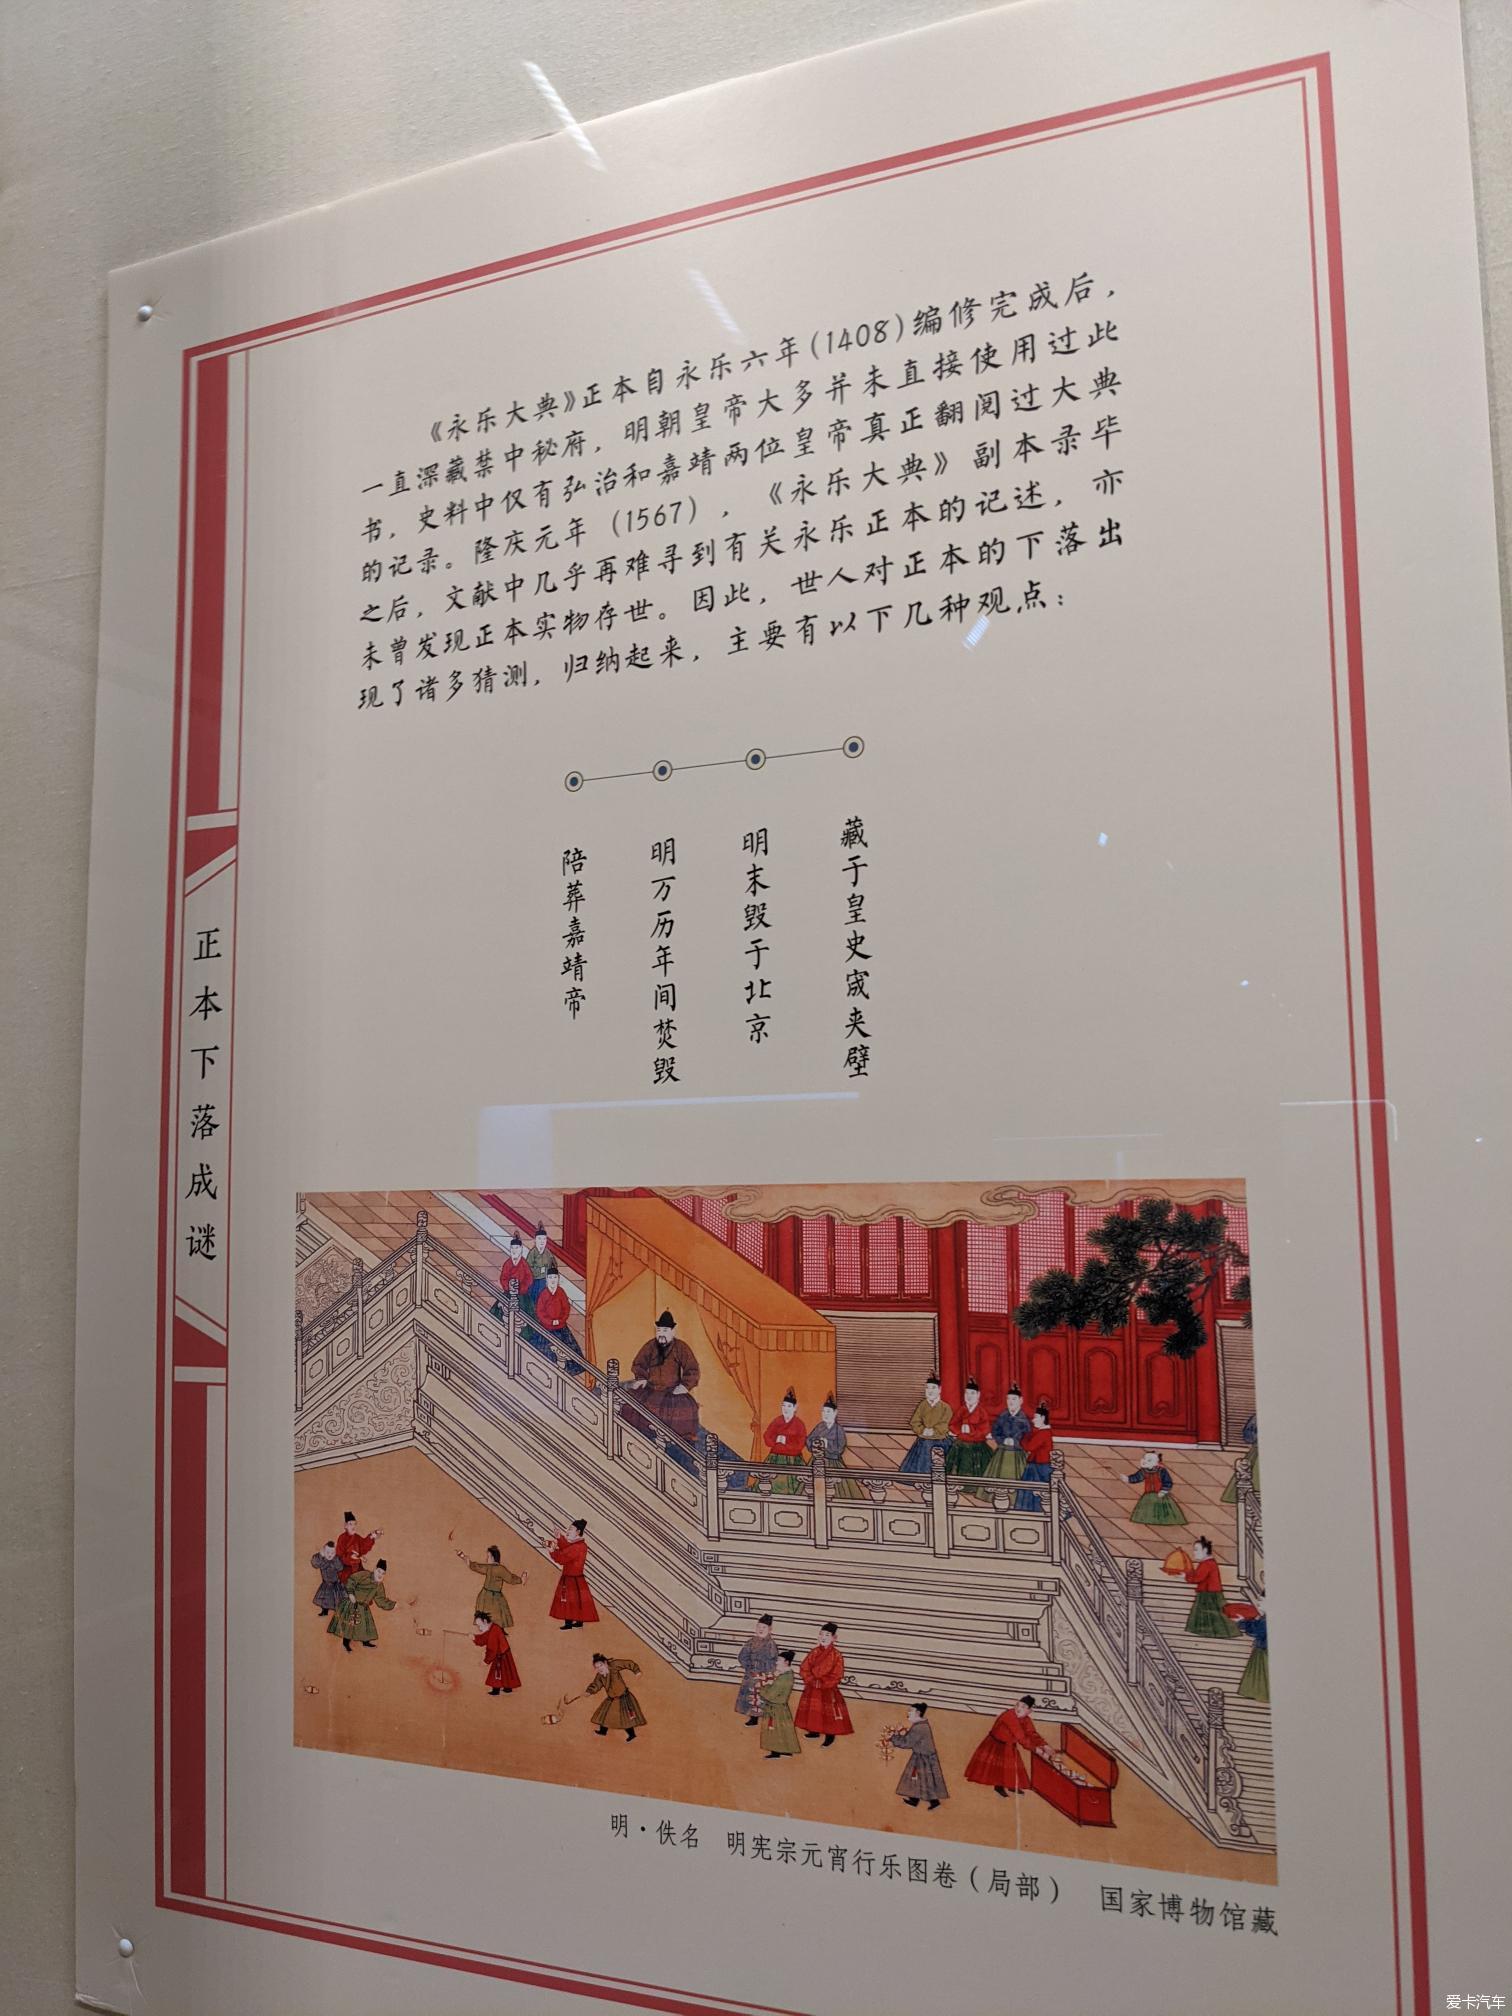 正本下落成谜
《永乐大典》正本自永乐六年(1408)编修完成后，
一直深藏禁中秘府，明朝皇帝大多并未直接使用过此
书，史料中仅有弘治和嘉靖两位皇帝真正翻阅过大典
的记录。隆庆元年（1567），《永乐大典》副本录毕
之后，文献中几乎再难寻到有关永乐正本的记述，亦
未曾发现正本实物存世。因此，世人对正本的下落出
现了诸多猜测，归纳起来，主要有以下几种观点：
陪葬嘉靖帝
明万历年间焚毁
明末毁于北京
藏于皇史宬夹壁
明·佚名 明宪宗元宵行乐图卷（局部） 国家博物馆藏
爱卡汽车